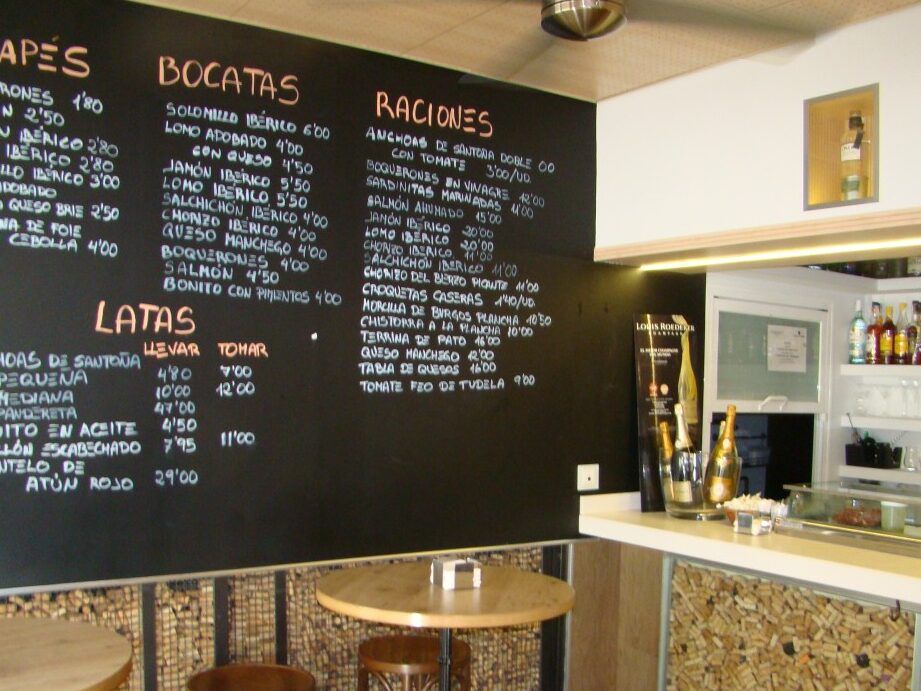 APÉS
RONES 1'80
N 2'50
IBÉRICO 2'80
IBÉRICO 2'80
LLO IBÉRICO 3'00
ADOBADO
QUESO BRIE 2'50
NA DE FOIE
CEBOLLA 4'00
BOCATAS
SOLOMILLO IBÉRICO 6'00
LOMO ADOBADO 4'00
CON QUESO 4'50
JAMÓN IBÉRICO 5'50
LOMO IBÉRICO 5'50
SALCHICHÓN IBÉRICO 4'00
CHORIZO IBÉRICO 4'00
QUESO MANCHEGO 4'00
BOQUERONES 4'00
SALMÓN 4'50
BONITO CON PIMIENTOS 4'00
RACIONES
ANCHOAS DE SANTOÑA DOBLE 00
CON TOMATE 3'00/UD.
BOQUERONES EN VINAGRE 12'00
SARDINITAS MARINADAS 11'00
SALMÓN AHUMADO 15'00
JAMÓN IBÉRICO 20'00
LOMO IBÉRICO 20'00
CHORIZO IBÉRICO 11'00
SALCHICHÓN IBÉRICO 11'00
CHORIZO DEL BIERZO PICANTE 11'00
CROQUETAS CASERAS 1'40/UD.
MORCILLA DE BURGOS PLANCHA 10'50
CHISTORRA A LA PLANCHA 10'00
TERRINA DE PATO 16'00
QUESO MANCHEGO 12'00
TABLA DE QUESOS 16'00
TOMATE FEO DE TUDELA 9'00
LATAS
LLEVAR TOMAR
HOAS DE SANTOÑA
PEQUEÑA 4'80 7'00
MEDIANA 10'00 12'00
PANDERETA 47'00
UITO EN ACEITE 4'50
LLÓN ESCABECHADO 7'95 11'00
NTELO DE
ATÚN ROJO 29'00
LOUIS ROEDERER
CHAMPAGNE